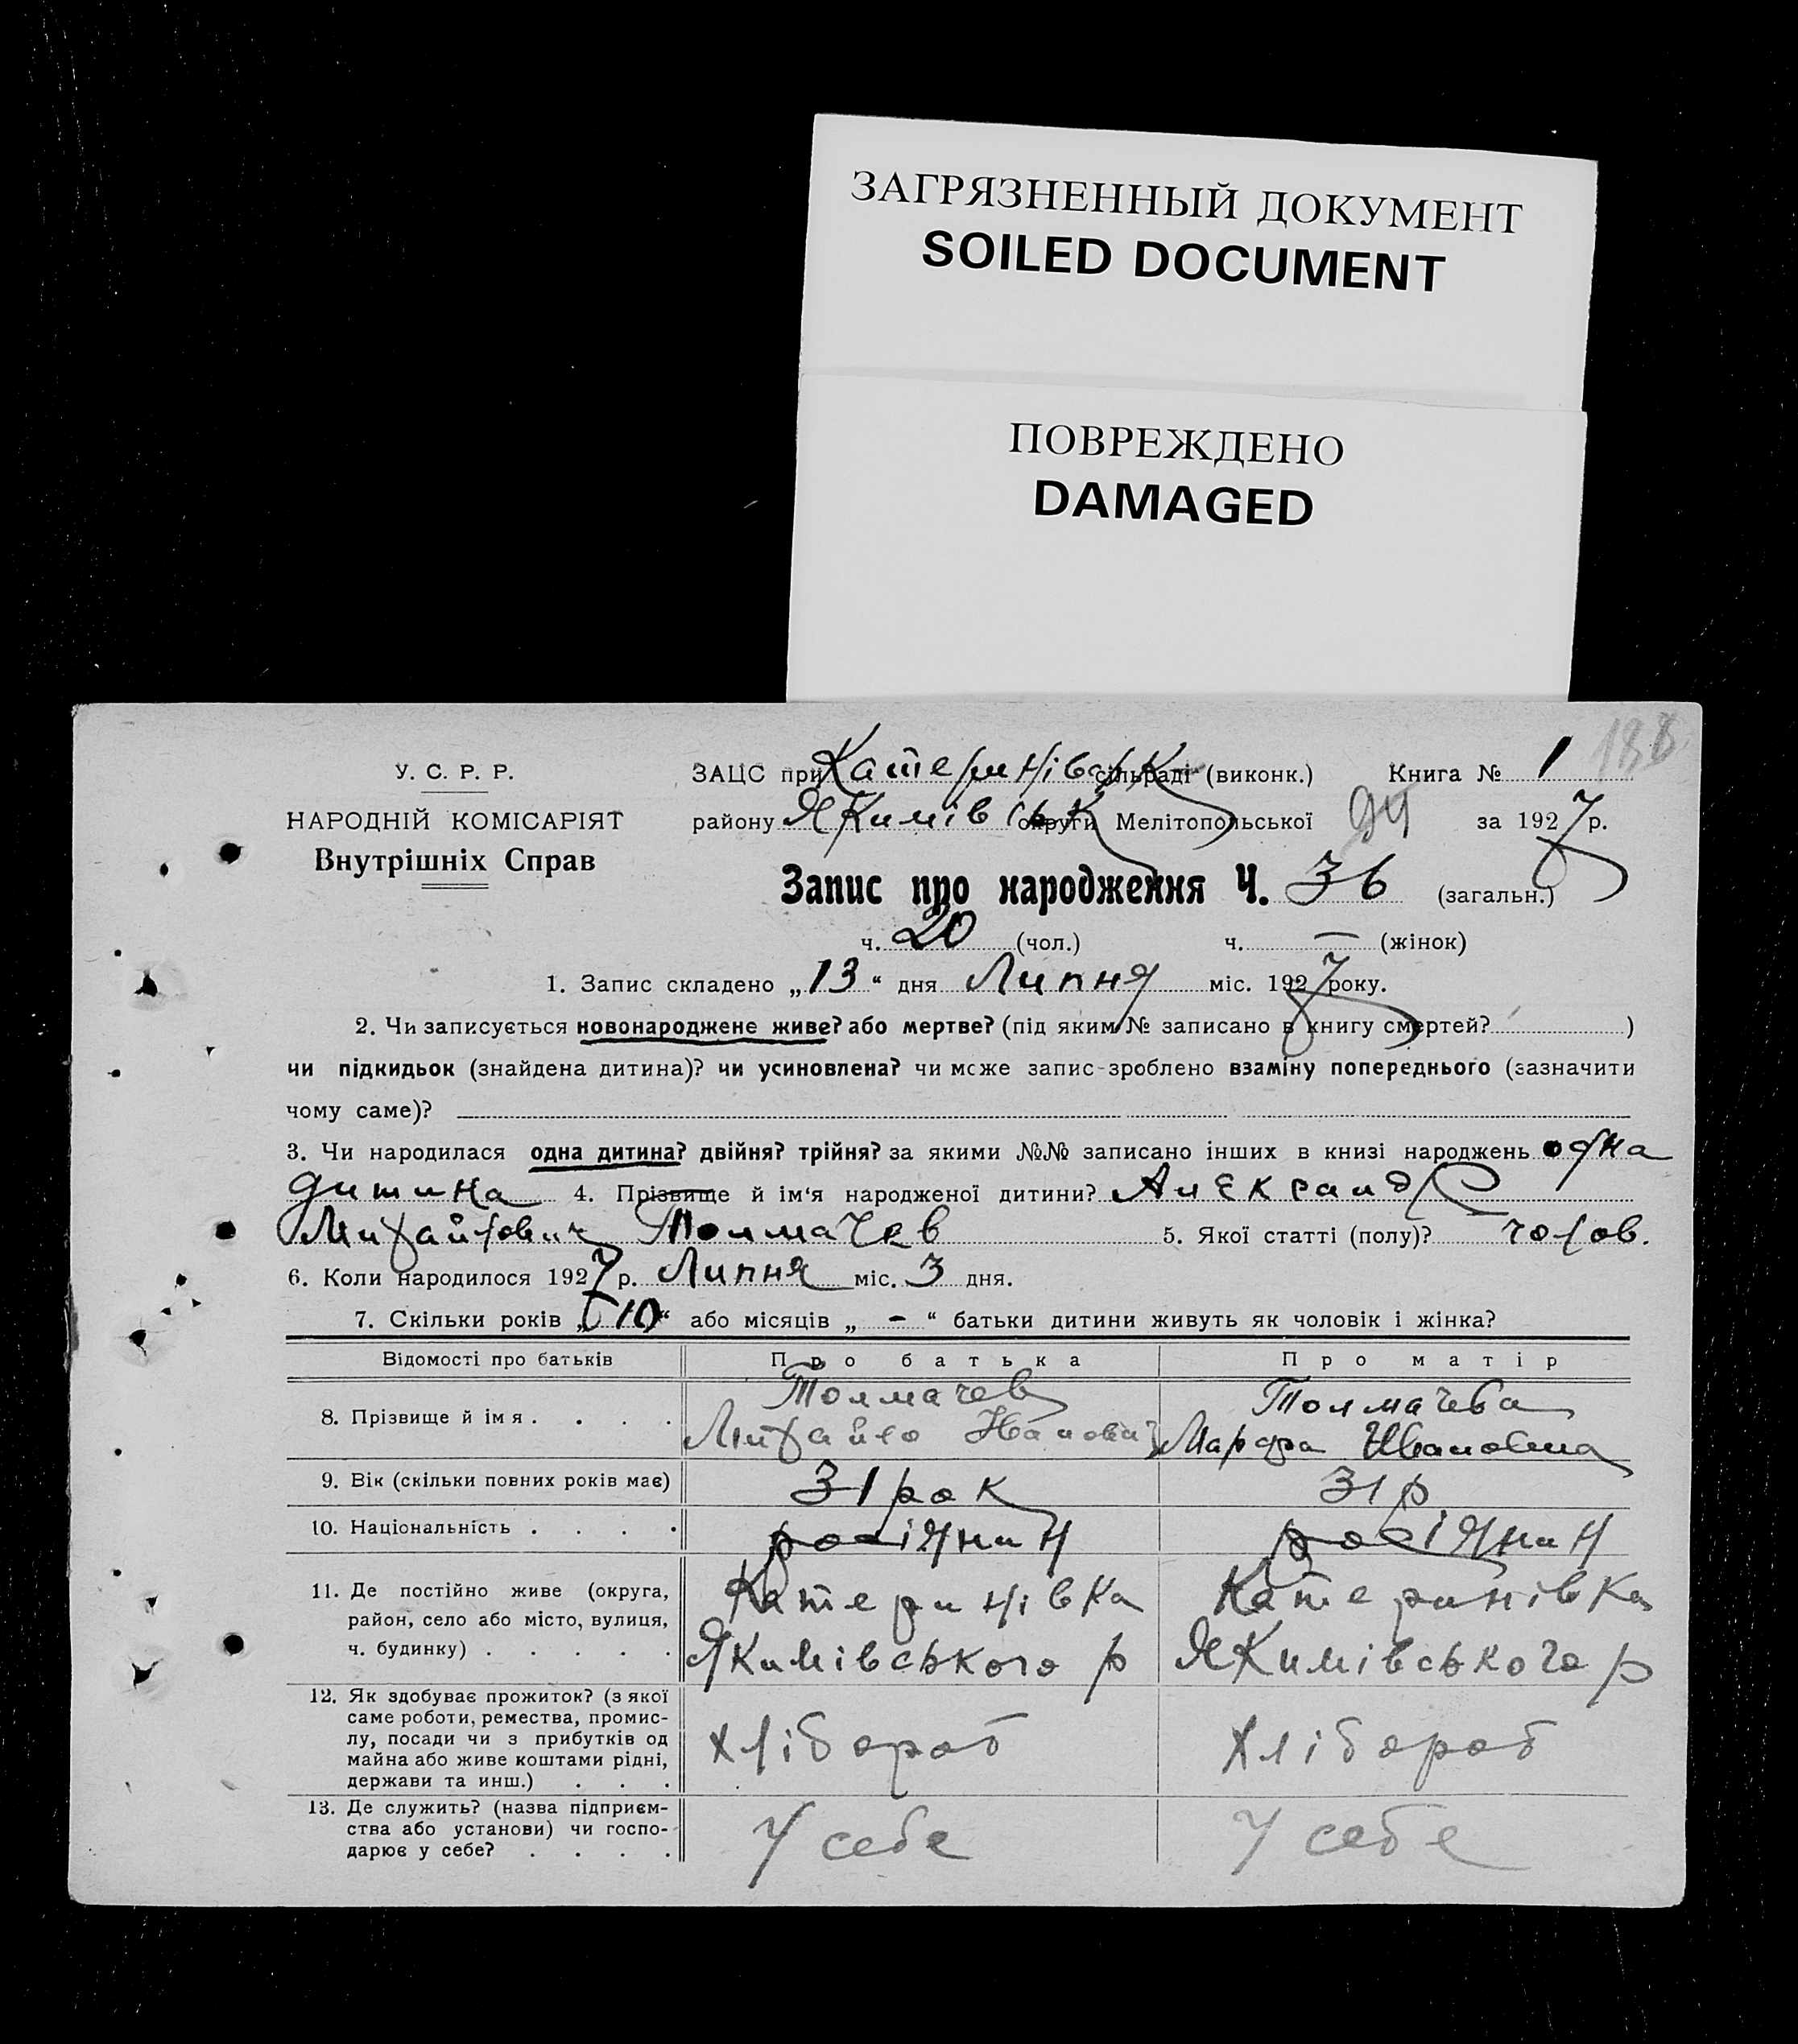 ЗАГРЯЗНЕННЫЙ ДОКУМЕНТ
SOILED DOCUMENT
ПОВРЕЖДЕНО
DAMAGED
188
У. С. Р. Р.
НАРОДНІЙ КОМІСАРІЯТ
Внутрішніх Справ
ЗАЦС при Катеринівськ сільраді (виконк.) Книга № 1
району Якимівськ округи Мелітопольської 94 за 1927 р.
Запис про народження Ч. 36 (загальн.)
ч. 20 (чол.) ч. — (жінок)
1. Запис складено „13“ дня Липня міс. 1927 року.
2. Чи записується новонароджене живе? або мертве? (під яким № записано в книгу смертей? )
чи підкидьок (знайдена дитина)? чи усиновлена? чи може запис-зроблено взаміну попереднього (зазначити
чому саме)?
3. Чи народилася одна дитина? двійня? трійня? за якими №№ записано інших в книзі народжень одна
дитина 4. Прізвище й ім‘я народженої дитини? Александр
Михайлович Толмачев 5. Якої статті (полу)? чолов.
6. Коли народилося 1927 р. Липня міс. 3 дня.
7. Скільки років „10“ або місяців „ - “ батьки дитини живуть як чоловік і жінка?
Відомості про батьків Про батька Про матір
8. Прізвище й імя . . . . Толмачев Толмачева
Михайло Іванович Марфа Ивановна
9. Вік (скільки повних років має) 31 рок 31 р
10. Національність . . . . росіянин росіянин
11. Де постійно живе (округа, район, село або місто, вулиця, ч. будинку) . . . . . Катеринівка Катеринівка
Якимівського р Якимівського р
12. Як здобуває прожиток? (з якої
саме роботи, ремества, промис-
лу, посади чи з прибутків од
майна або живе коштами рідні,
держави та инш.) . . . хлібороб хлібороб
13. Де служить? (назва підприєм-
ства або установи) чи госпо-
дарює у себе? . . . . У себе У себе